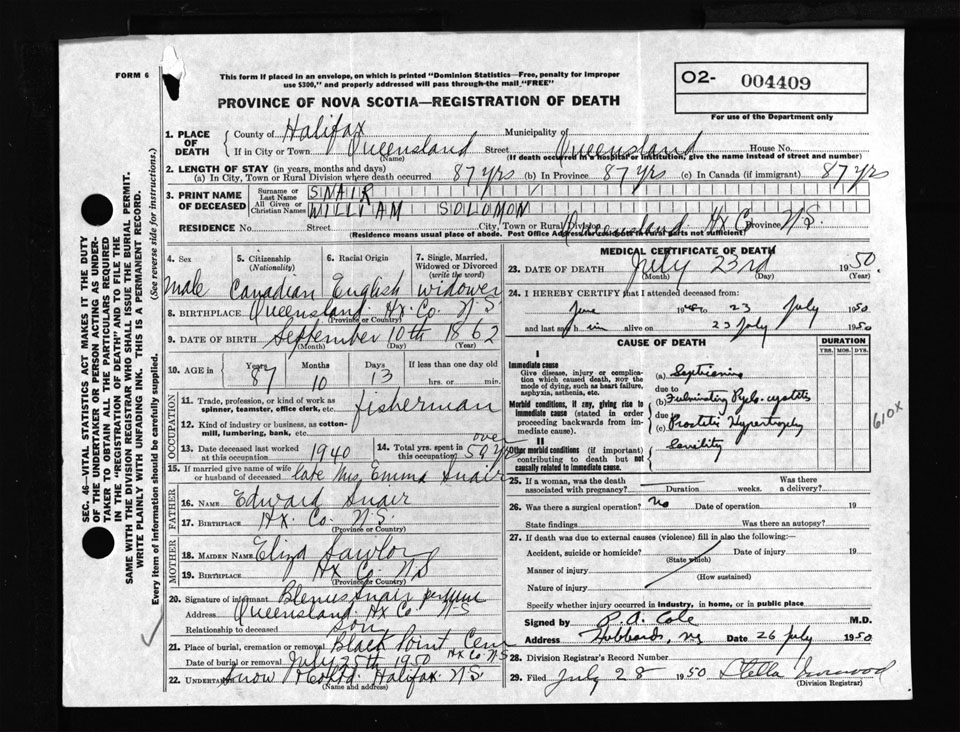 FORM 6
This form if placed in an envelope, on which is printed "Dominion Statistics—Free, penalty for improper
use $300," and properly addressed will pass through the mail "FREE"
O2- 004409
For use of the Department only
PROVINCE OF NOVA SCOTIA—REGISTRATION OF DEATH
SEC. 46—VITAL STATISTICS ACT MAKES IT THE DUTY
OF THE UNDERTAKER OR PERSON ACTING AS UNDER-
TAKER TO OBTAIN ALL THE PARTICULARS REQUIRED
IN THE "REGISTRATION OF DEATH" AND TO FILE THE
SAME WITH THE DIVISION REGISTRAR WHO SHALL ISSUE THE BURIAL PERMIT.
WRITE PLAINLY WITH UNFADING INK. THIS IS A PERMANENT RECORD.
Every item of information should be carefully supplied. (See reverse side for instructions.)
1. PLACE OF DEATH
County of Halifax Municipality of
If in City or Town Queensland Street Queensland House No.
(Name) (If death occurred in a hospital or institution, give the name instead of street and number)
2. LENGTH OF STAY (in years, months and days)
(a) In City, Town or Rural Division where death occurred 87 yrs (b) In Province 87 yrs (c) In Canada (if immigrant) 87 yrs
3. PRINT NAME OF DECEASED
Surname or Last Name SNAIR
All Given or Christian Names WILLIAM SOLOMON
RESIDENCE No. Street City, Town or Rural Division Queensland Hx Co. Province N.S.
(Residence means usual place of abode. Post Office Address for residents in rural areas not sufficient)
4. Sex male
5. Citizenship (Nationality) Canadian
6. Racial Origin English
7. Single, Married, Widowed or Divorced (write the word) widower
8. BIRTHPLACE Queensland Hx. Co. N.S.
(Province or Country)
9. DATE OF BIRTH September 10th 1862
(Month) (Day) (Year)
10. AGE in Years 87 Months 10 Days 13 If less than one day old hrs. or min.
OCCUPATION
11. Trade, profession, or kind of work as spinner, teamster, office clerk, etc. fisherman
12. Kind of industry or business, as cotton-mill, lumbering, bank, etc.
13. Date deceased last worked at this occupation 1940
14. Total yrs. spent in this occupation over 50 yrs
15. If married give name of wife or husband of deceased late Mrs. Emma Snair
FATHER
16. NAME Edward Snair
17. BIRTHPLACE Hx. Co. N.S.
(Province or Country)
MOTHER
18. MAIDEN NAME Eliza Sawlor
19. BIRTHPLACE Hx Co. N.S
(Province or Country)
20. Signature of informant Snair
Address Queensland. Hx Co. N-S
Relationship to deceased Son
21. Place of burial, cremation or removal Black Point Cem Hx Co N.S
Date of burial or removal July 25th 1950
22. UNDERTAKER Snow Halifax N.S.
(Name and address)
MEDICAL CERTIFICATE OF DEATH
23. DATE OF DEATH July 23rd 1950.
(Month) (Day) (Year)
24. I HEREBY CERTIFY that I attended deceased from:
June 19 to 23 July 1950
and last saw h im alive on 23 July 1950
CAUSE OF DEATH
DURATION
YRS. MOS. DYS.
I
Immediate cause
Give disease, injury or complication which caused death, NOT the mode of dying, such as heart failure, asphyxia, asthenia, etc.
(a) Septicaemia
due to
Morbid conditions, if any, giving rise to immediate cause (stated in order proceeding backwards from immediate cause).
(b) Fulminating Pyelo-cystitis
due to
(c) Prostatic Hypertrophy
II
Other morbid conditions (if important) contributing to death but not causally related to immediate cause.
Senility
610X
25. If a woman, was the death associated with pregnancy? Duration weeks. Was there a delivery?
26. Was there a surgical operation? no Date of operation 19
State findings Was there an autopsy?
27. If death was due to external causes (violence) fill in also the following:—
Accident, suicide or homicide? Date of injury 19
(State which)
Manner of injury
(How sustained)
Nature of injury
Specify whether injury occurred in industry, in home, or in public place
Signed by Cole M.D.
Address Hubbards, NS Date 26 July 1950
28. Division Registrar's Record Number
29. Filed July 28 1950 Stella
(Division Registrar)